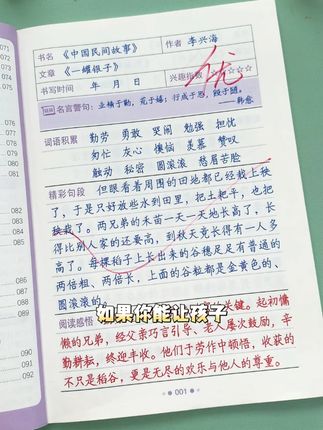 书名 《中国民间故事》 作者 李兴海
文章 《一罐银子》
书写时间 年 月 日 兴趣指数 ☆☆☆☆☆
优
名言警句: 业精于勤,荒于嬉;行成于思,毁于随。
——韩愈
词语积累 勤劳 勇敢 哭闹 勉强 担忧
匆忙 灰心 懊恼 羡慕 赞叹
触动 秘密 圆滚滚 愁眉苦脸
精彩句段 但眼看着周围的田地都已经栽上秧
了,于是只好放些水到田里,把土耙平,也把
秧栽了。两兄弟的禾苗一天一天地长高了,长
得比别人家的还要高,到秋天竟长得有一人多
高了。每棵稻子上长出来的谷穗足足有普通的
两倍粗、两倍长,上面的谷粒都是金黄色的、
圆滚滚的。
如果你能让孩子
阅读感悟 关键。起初慵
懒的兄弟,经父亲巧言引导、老人屡次鼓励,辛
勤耕耘,终迎丰收。他们于劳作中顿悟,收获的
不只是稻谷,更是无尽的欢乐与他人的尊重。
001
071
072
073
074
075
082
083
084
085
089
090
092